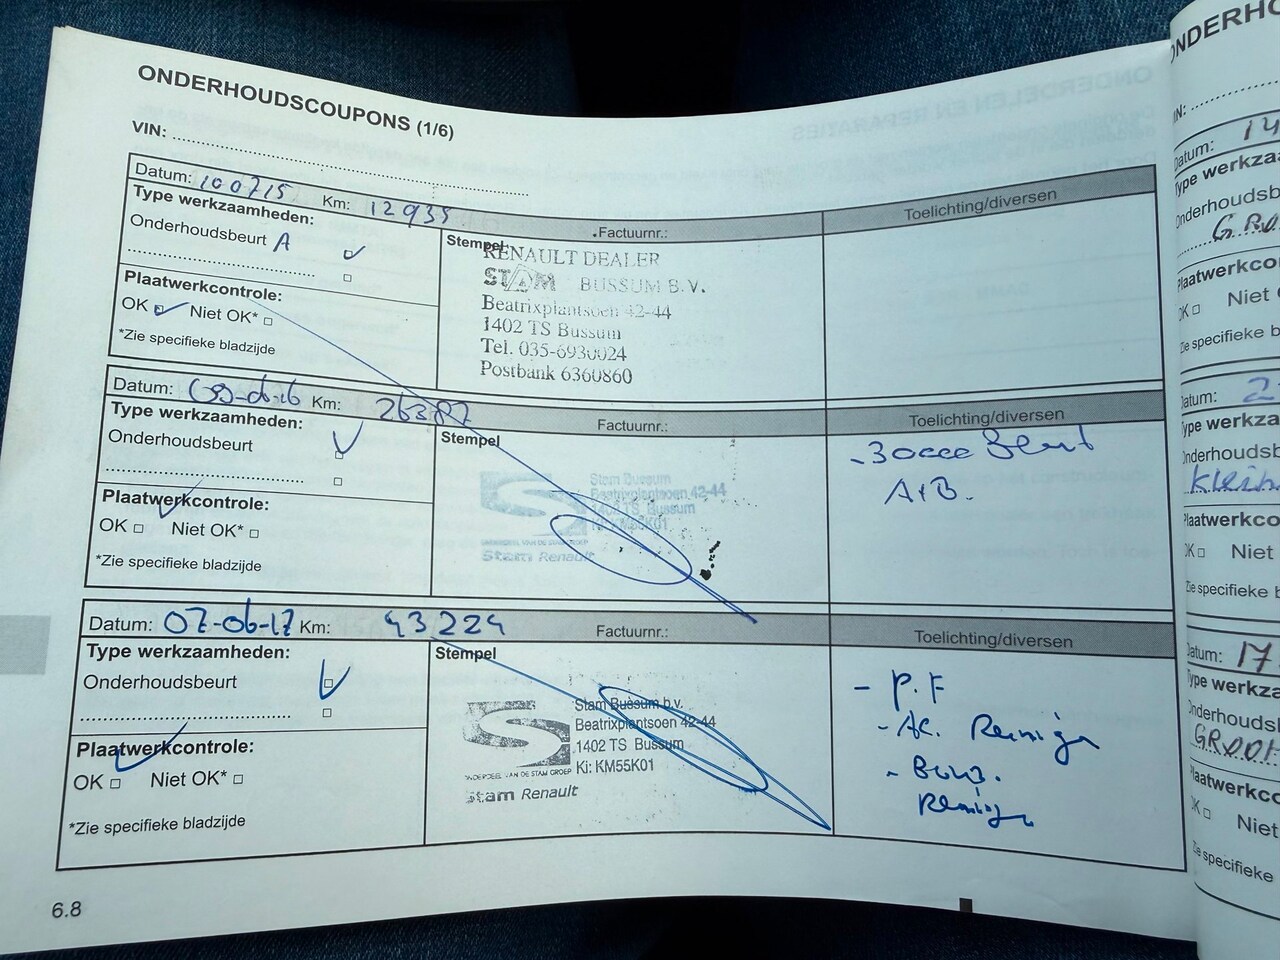 ONDERHOUDSCOUPONS (1/6)
VIN:
Datum: 100715 Km: 12935 Factuurnr.: Toelichting/diversen
Type werkzaamheden:
Onderhoudsbeurt A
Stempel
RENAULT DEALER
STAM BUSSUM B.V.
Beatrixplantsoen 42-44
1402 TS Bussum
Tel. 035-6930024
Postbank 6360860
Plaatwerkcontrole:
OK Niet OK*
*Zie specifieke bladzijde
Datum: Km: 26387 Factuurnr.: Toelichting/diversen
Type werkzaamheden:
Onderhoudsbeurt
Stempel
Stam Bussum
Beatrixplantsoen 42-44
1402 TS Bussum
KI: KM55K01
ONDERDEEL VAN DE STAM GROEP
Stam Renault
A+B.
Plaatwerkcontrole:
OK Niet OK*
*Zie specifieke bladzijde
Datum: 07-06-17 Km: 43224 Factuurnr.: Toelichting/diversen
Type werkzaamheden:
Onderhoudsbeurt
Stempel
Stam Bussum b.v.
Beatrixplantsoen 42-44
1402 TS Bussum
Ki: KM55K01
ONDERDEEL VAN DE STAM GROEP
Stam Renault
- P.F
- Ac. Reinigen
Plaatwerkcontrole:
OK Niet OK*
*Zie specifieke bladzijde
6.8
Datum: 14
Type werkza
Onderhoudsb
Plaatwerkco
OK Niet
Zie specifieke b
Datum: 2
Type werkza
Onderhoudsb
Klein
Plaatwerkco
OK Niet
Zie specifieke b
Datum: 17
Type werkza
Onderhoudsb
GROOT
Plaatwerkco
OK Niet
Zie specifieke